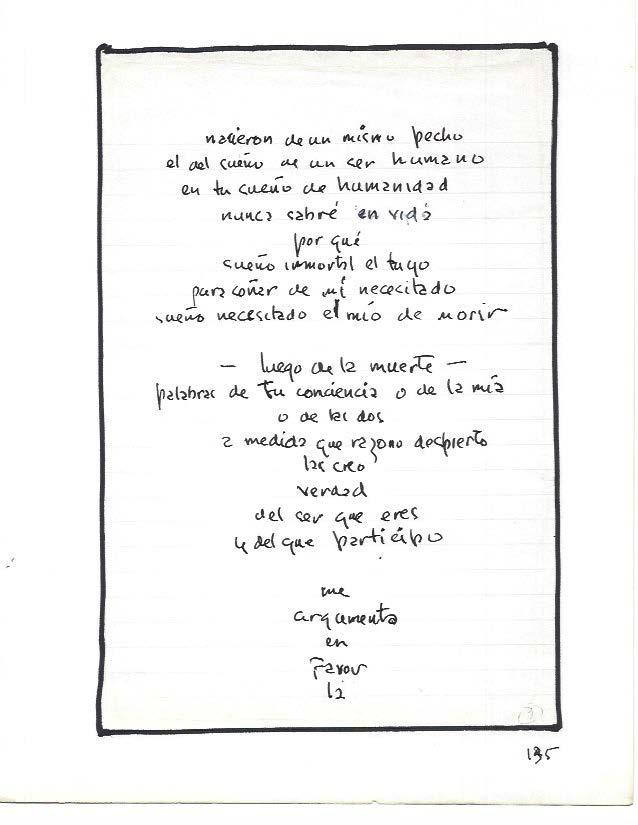 nacieron de un mismo pecho
el del sueño de un ser humano
en tu sueño de humanidad
nunca sabré en vida
por qué
sueño inmortal el tuyo
para soñar de mí necesitado
sueño necesitado el mío de morir
— luego de la muerte —
palabras de tu conciencia o de la mía
o de las dos
a medida que razono despierto
las creo
verdad
del ser que eres
y del que participo
me
argumenta
en
favor
la
(3)
135